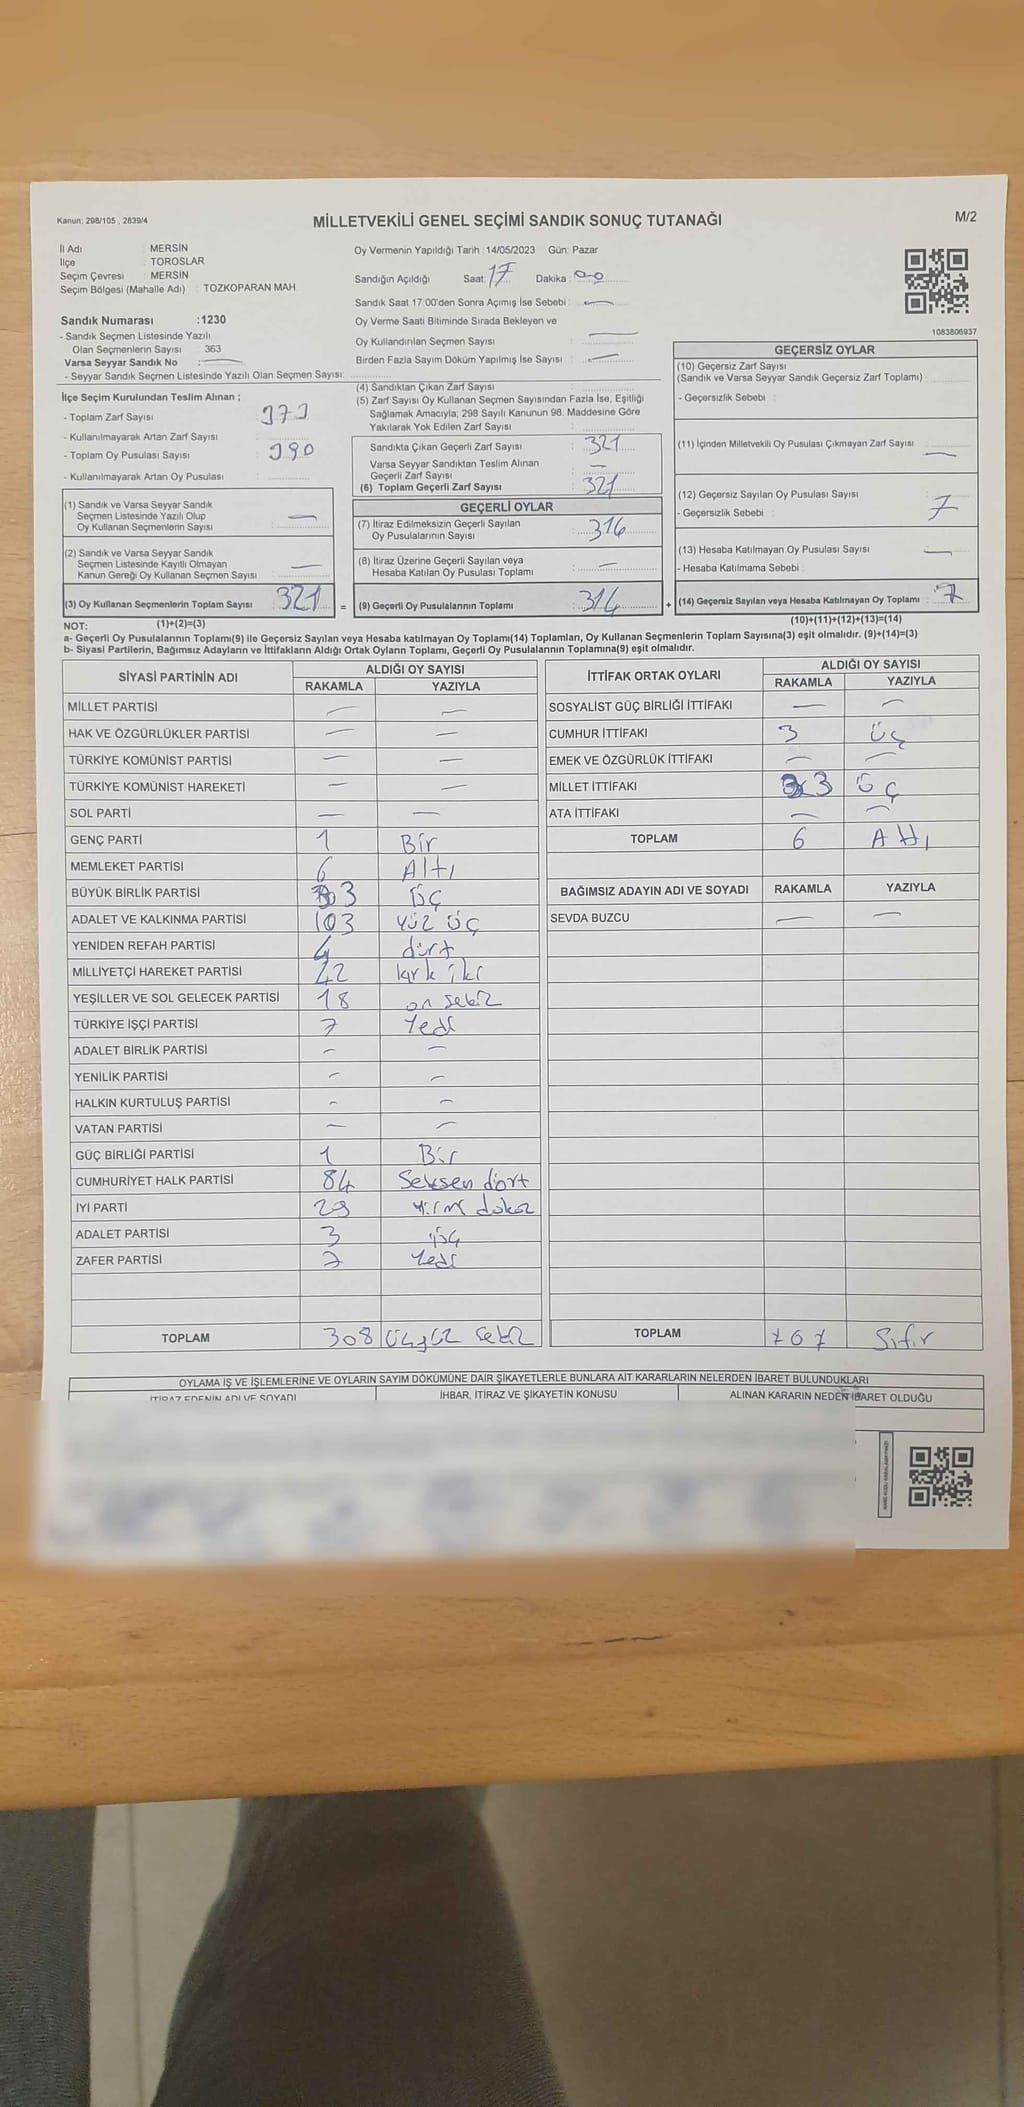 Kanun: 298/105 , 2839/4
MİLLETVEKİLİ GENEL SEÇİMİ SANDIK SONUÇ TUTANAĞI
M/2
İl Adı : MERSİN
İlçe : TOROSLAR
Seçim Çevresi : MERSİN
Seçim Bölgesi (Mahalle Adı) : TOZKOPARAN MAH.
Oy Vermenin Yapıldığı Tarih : 14/05/2023 Gün: Pazar
Sandığın Açıldığı Saat: 17 Dakika : 00
Sandık Saat 17:00'den Sonra Açımış İse Sebebi : —
Oy Verme Saati Bitiminde Sırada Bekleyen ve
Oy Kullandırılan Seçmen Sayısı : —
Birden Fazla Sayım Döküm Yapılmış İse Sayısı : —
1083806937
Sandık Numarası :1230
- Sandık Seçmen Listesinde Yazılı
Olan Seçmenlerin Sayısı : 363
Varsa Seyyar Sandık No : —
- Seyyar Sandık Seçmen Listesinde Yazılı Olan Seçmen Sayısı:
İlçe Seçim Kurulundan Teslim Alınan ;
- Toplam Zarf Sayısı :
- Kullanılmayarak Artan Zarf Sayısı :
- Toplam Oy Pusulası Sayısı : 390
- Kullanılmayarak Artan Oy Pusulası :
(1) Sandık ve Varsa Seyyar Sandık
Seçmen Listesinde Yazılı Olup
Oy Kullanan Seçmenlerin Sayısı : —
(2) Sandık ve Varsa Seyyar Sandık
Seçmen Listesinde Kayıtlı Olmayan
Kanun Gereği Oy Kullanan Seçmen Sayısı : —
(3) Oy Kullanan Seçmenlerin Toplam Sayısı : 321
(4) Sandıktan Çıkan Zarf Sayısı :
(5) Zarf Sayısı Oy Kullanan Seçmen Sayısından Fazla İse, Eşitliği
Sağlamak Amacıyla; 298 Sayılı Kanunun 98. Maddesine Göre
Yakılarak Yok Edilen Zarf Sayısı :
Sandıkta Çıkan Geçerli Zarf Sayısı : 321
Varsa Seyyar Sandıktan Teslim Alınan
Geçerli Zarf Sayısı : —
(6) Toplam Geçerli Zarf Sayısı : 321
GEÇERLİ OYLAR
(7) İtiraz Edilmeksizin Geçerli Sayılan
Oy Pusulalarının Sayısı : 314
(8) İtiraz Üzerine Geçerli Sayılan veya
Hesaba Katılan Oy Pusulası Toplamı : —
= (9) Geçerli Oy Pusulalarının Toplamı : 314
GEÇERSİZ OYLAR
(10) Geçersiz Zarf Sayısı
(Sandık ve Varsa Seyyar Sandık Geçersiz Zarf Toplamı) :
- Geçersizlik Sebebi :
(11) İçinden Milletvekili Oy Pusulası Çıkmayan Zarf Sayısı : —
(12) Geçersiz Sayılan Oy Pusulası Sayısı : 7
- Geçersizlik Sebebi :
(13) Hesaba Katılmayan Oy Pusulası Sayısı : —
- Hesaba Katılmama Sebebi :
+ (14) Geçersiz Sayılan veya Hesaba Katılmayan Oy Toplamı : 7
NOT: (1)+(2)=(3)
(10)+(11)+(12)+(13)=(14)
a- Geçerli Oy Pusulalarının Toplamı(9) ile Geçersiz Sayılan veya Hesaba katılmayan Oy Toplamı(14) Toplamları, Oy Kullanan Seçmenlerin Toplam Sayısına(3) eşit olmalıdır. (9)+(14)=(3)
b- Siyasi Partilerin, Bağımsız Adayların ve İttifakların Aldığı Ortak Oyların Toplamı, Geçerli Oy Pusulalarının Toplamına(9) eşit olmalıdır.
SİYASİ PARTİNİN ADI
ALDIĞI OY SAYISI
RAKAMLA YAZIYLA
MİLLET PARTİSİ — —
HAK VE ÖZGÜRLÜKLER PARTİSİ — —
TÜRKİYE KOMÜNİST PARTİSİ — —
TÜRKİYE KOMÜNİST HAREKETİ — —
SOL PARTİ — —
GENÇ PARTİ 1 Bir
MEMLEKET PARTİSİ 6 Altı
BÜYÜK BİRLİK PARTİSİ 3 Üç
ADALET VE KALKINMA PARTİSİ 103 Yüz üç
YENİDEN REFAH PARTİSİ 4 dört
MİLLİYETÇİ HAREKET PARTİSİ 42 kırk iki
YEŞİLLER VE SOL GELECEK PARTİSİ 18 on sekiz
TÜRKİYE İŞÇİ PARTİSİ 7 Yedi
ADALET BİRLİK PARTİSİ — —
YENİLİK PARTİSİ — —
HALKIN KURTULUŞ PARTİSİ — —
VATAN PARTİSİ — —
GÜÇ BİRLİĞİ PARTİSİ 1 Bir
CUMHURİYET HALK PARTİSİ 84 Seksen dört
İYİ PARTİ 29 yirmi dokuz
ADALET PARTİSİ 3 üç
ZAFER PARTİSİ 7 Yedi
TOPLAM 308 üçyüz sekiz
İTTİFAK ORTAK OYLARI
ALDIĞI OY SAYISI
RAKAMLA YAZIYLA
SOSYALİST GÜÇ BİRLİĞİ İTTİFAKI — —
CUMHUR İTTİFAKI 3 Üç
EMEK VE ÖZGÜRLÜK İTTİFAKI — —
MİLLET İTTİFAKI 3 Üç
ATA İTTİFAKI — —
TOPLAM 6 Altı
BAĞIMSIZ ADAYIN ADI VE SOYADI RAKAMLA YAZIYLA
SEVDA BUZCU — —
TOPLAM 0 Sıfır
OYLAMA İŞ VE İŞLEMLERİNE VE OYLARIN SAYIM DÖKÜMÜNE DAİR ŞİKAYETLERLE BUNLARA AİT KARARLARIN NELERDEN İBARET BULUNDUKLARI
İTİRAZ EDENİN ADI VE SOYADI İHBAR, İTİRAZ VE ŞİKAYETİN KONUSU ALINAN KARARIN NEDEN İBARET OLDUĞU